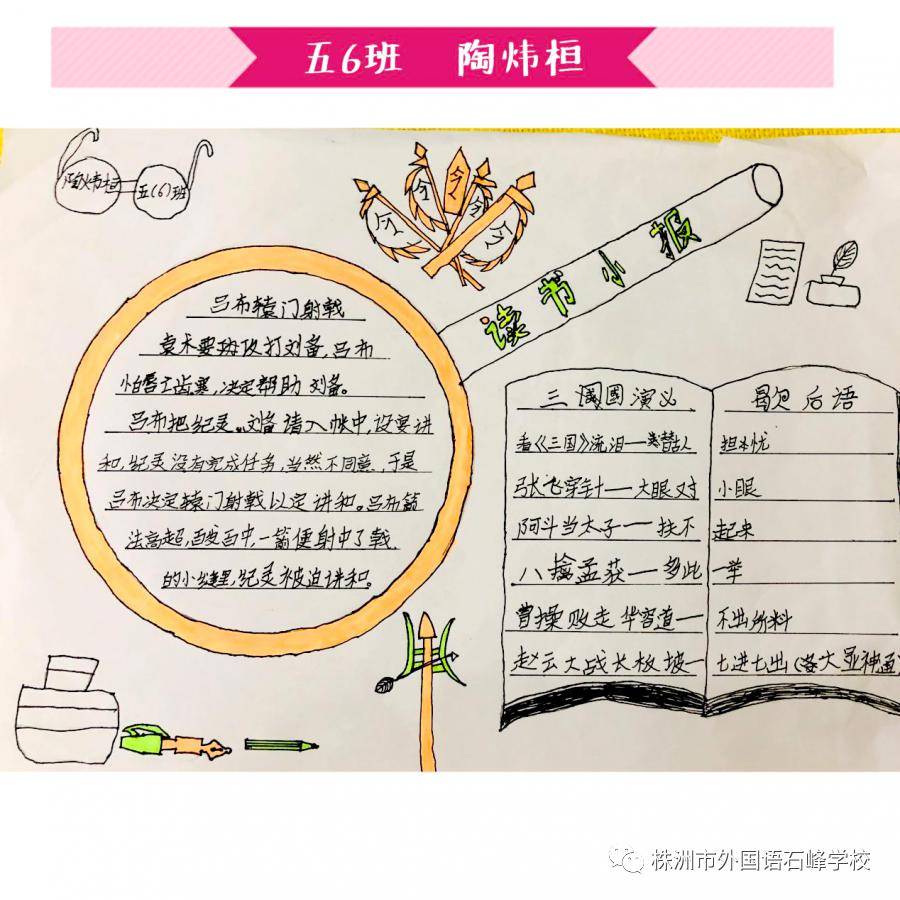 五6班 陶炜桓
陶炜桓 五(6)班
令 令 令 令 令
读书小报
吕布辕门射戟
袁术要班攻打刘备,吕布
怕唇亡齿寒,决定帮助刘备。
吕布把纪灵、刘备请入帐中,设宴讲
和,纪灵没有完成任务,当然不同意,于是
吕布决定辕门射戟以定讲和。吕布箭
法高超,百中,一箭便射中了戟
的小缝里,纪灵被迫讲和。
三国演义
看《三国》流泪——类替古人
张飞穿针——大眼对
阿斗当太子——扶不
八擒孟获——多此
曹操败走华容道—
赵云大战长板坡—
歇后语
担忧
小眼
起来
一举
不出所料
七进七出(各大显神通)
株洲市外国语石峰学校